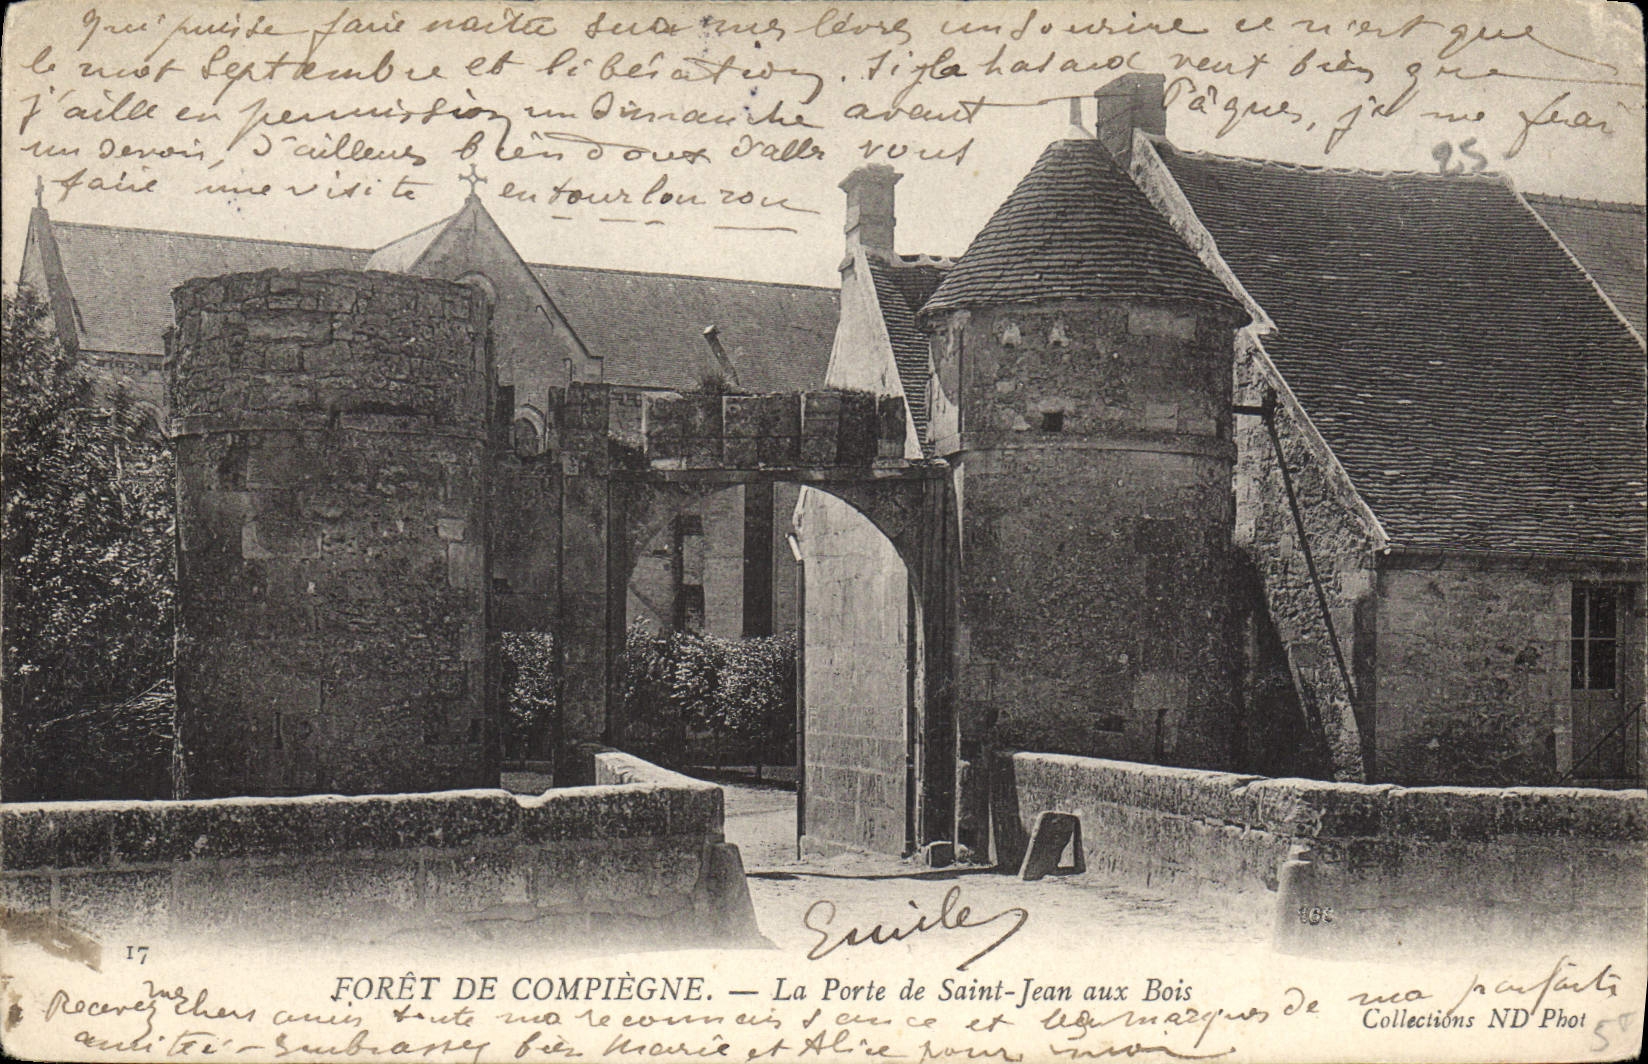 qui puisse faire naître sur mes lèvres un sourire ce n'est que
le mot Septembre et libération. Si le hasard veut bien que
j'aille en permission un Dimanche avant Pâques, je me ferai
un devoir, d'ailleurs bien doux d'aller vous
faire une visite en tourlourou
25
Emile
168
17
FORÊT DE COMPIÈGNE. — La Porte de Saint-Jean aux Bois
Recevez mes chers amis toute ma reconnaissance et les marques de ma parfaite
Collections ND Phot
amitié - Embrassez bien Marie et Alice pour moi
5